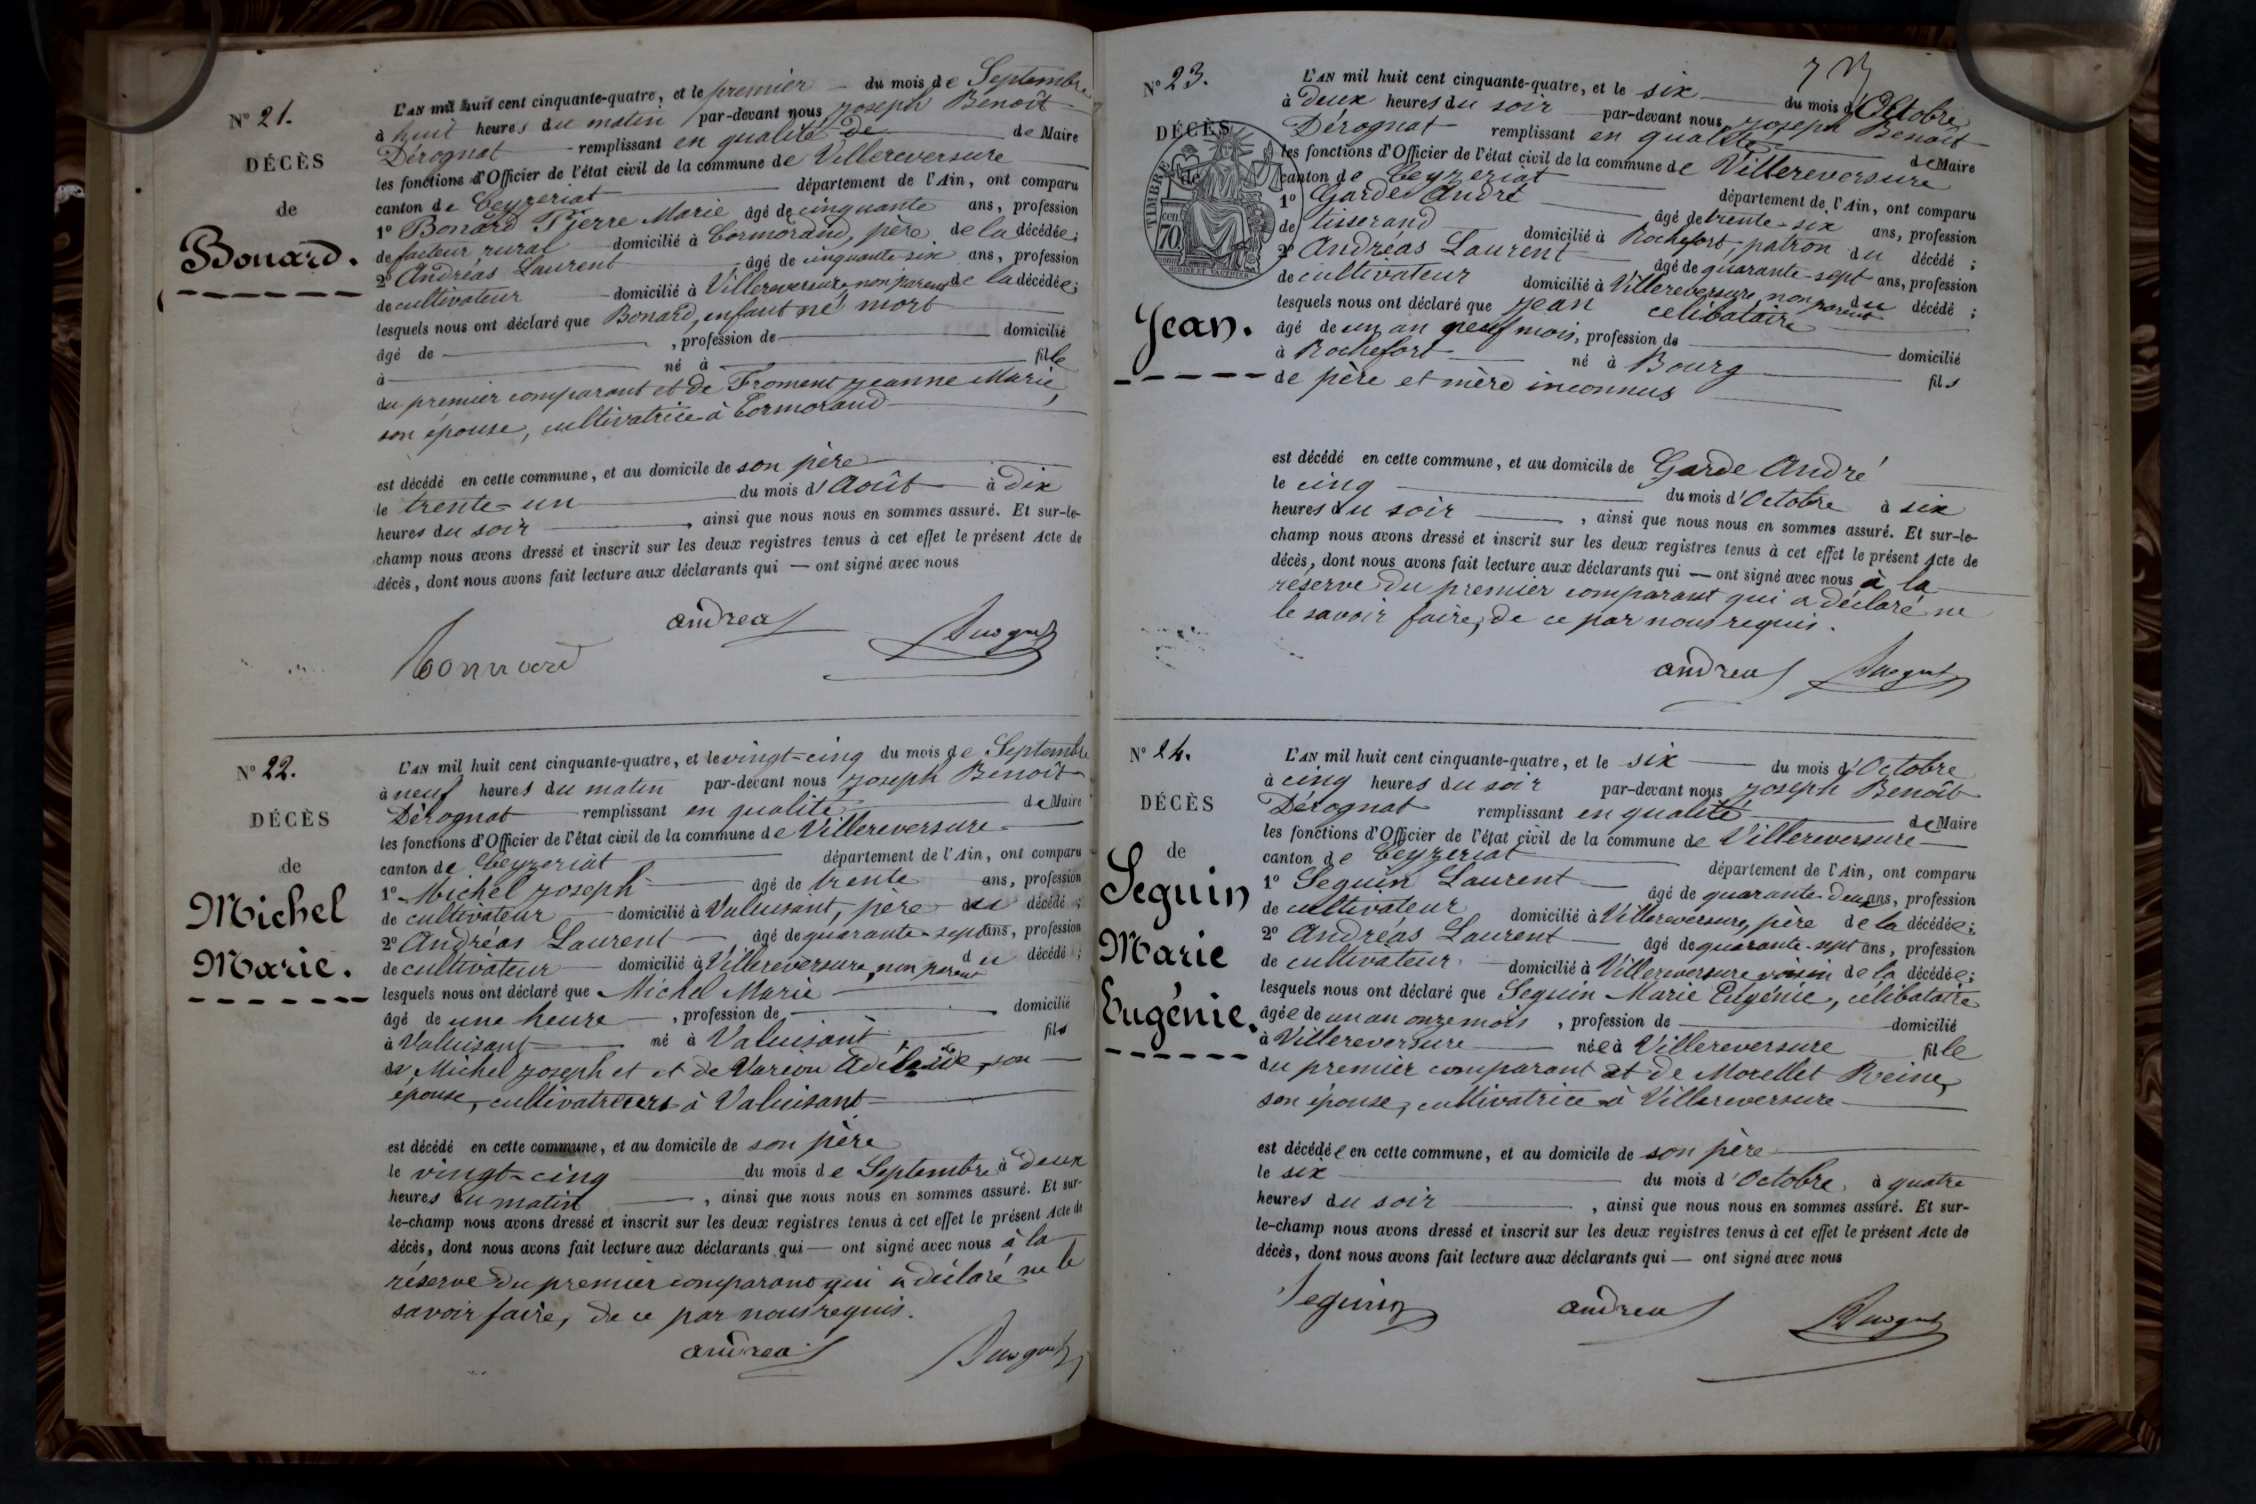 N° 21.
DÉCÈS
de
Bonard.
L'AN mil huit cent cinquante-quatre, et le premier du mois de Septembre
à huit heures du matin par-devant nous Joseph Benoît
Dérognat remplissant en qualité de de Maire
les fonctions d'Officier de l'état civil de la commune de Villereversure
canton de Ceyzeriat département de l'Ain, ont comparu
1° Bonard Pierre Marie âgé de cinquante ans, profession
de facteur rural domicilié à Cormorand, père de la décédée;
2° Andréas Laurent âgé de cinquante six ans, profession
de cultivateur domicilié à Villereversure, non parent de la décédée;
lesquels nous ont déclaré que Bonard, enfant né mort
âgé de , profession de domicilié
à né à fille
du premier comparant et de Froment Jeanne Marie,
son épouse, cultivatrice à Cormorand
est décédé en cette commune, et au domicile de son père
le trente-un du mois d'Août à dix
heures du soir , ainsi que nous nous en sommes assuré. Et sur-le-
champ nous avons dressé et inscrit sur les deux registres tenus à cet effet le présent Acte de
décès, dont nous avons fait lecture aux déclarants qui — ont signé avec nous
andreas
N° 22.
DÉCÈS
de
Michel
Marie.
L'AN mil huit cent cinquante-quatre, et le vingt-cinq du mois de Septembre
à neuf heures du matin par-devant nous Joseph Benoît
Dérognat remplissant en qualité de Maire
les fonctions d'Officier de l'état civil de la commune de Villereversure
canton de Ceyzeriat département de l'Ain, ont comparu
1° Michel Joseph âgé de trente ans, profession
de cultivateur domicilié à Valuisant, père du décédé;
2° Andréas Laurent âgé de quarante-sept ans, profession
de cultivateur domicilié à Villereversure, non parent du décédé;
lesquels nous ont déclaré que Michel Marie
âgé de une heure , profession de domicilié
à Valuisant né à Valuisant fils
de Michel Joseph et et de Varion Adélaïde, son
épouse, à Valuisant
est décédé en cette commune, et au domicile de son père
le vingt-cinq du mois de Septembre à deux
heures du matin , ainsi que nous nous en sommes assuré. Et sur-
le-champ nous avons dressé et inscrit sur les deux registres tenus à cet effet le présent Acte de
décès, dont nous avons fait lecture aux déclarants qui — ont signé avec nous à la
réserve du premier comparant qui a déclaré ne le
savoir faire, de ce par nous requis.
andreas
N° 23.
DÉCÈS
de
TIMBRE
cen
70
Jean.
L'AN mil huit cent cinquante-quatre, et le six du mois d'Octobre
à deux heures du soir par-devant nous Joseph Benoît
Dérognat remplissant en qualité de Maire
les fonctions d'Officier de l'état civil de la commune de Villereversure
canton de Ceyzeriat département de l'Ain, ont comparu
1° Garde André âgé de trente-six ans, profession
de tisserand domicilié à Rochefort, patron du décédé;
2° Andréas Laurent âgé de quarante-sept ans, profession
de cultivateur domicilié à Villereversure, non parent du décédé;
lesquels nous ont déclaré que Jean célibataire
âgé de un an neuf mois, profession de domicilié
à Rochefort né à Bourg fils
de père et mère inconnus
est décédé en cette commune, et au domicile de Garde André
le cinq du mois d'Octobre à six
heures du soir , ainsi que nous nous en sommes assuré. Et sur-le-
champ nous avons dressé et inscrit sur les deux registres tenus à cet effet le présent Acte de
décès, dont nous avons fait lecture aux déclarants qui — ont signé avec nous à la
réserve du premier comparant qui a déclaré ne
le savoir faire, de ce par nous requis.
andreas
N° 24.
DÉCÈS
de
Seguin
Marie
Eugénie.
L'AN mil huit cent cinquante-quatre, et le six du mois d'Octobre
à cinq heures du soir par-devant nous Joseph Benoît
Dérognat remplissant en qualité de Maire
les fonctions d'Officier de l'état civil de la commune de Villereversure
canton de Ceyzeriat département de l'Ain, ont comparu
1° Seguin Laurent âgé de quarante-deux ans, profession
de cultivateur domicilié à Villereversure, père de la décédée;
2° Andréas Laurent âgé de quarante-sept ans, profession
de cultivateur domicilié à Villereversure voisin de la décédée;
lesquels nous ont déclaré que Seguin Marie Eugénie, célibataire
âgée de un an onze mois , profession de domicilié
à Villereversure née à Villereversure fille
du premier comparant et de Morellet Reine,
son épouse, cultivatrice à Villereversure
est décédée en cette commune, et au domicile de son père
le six du mois d'Octobre à quatre
heures du soir , ainsi que nous nous en sommes assuré. Et sur-
le-champ nous avons dressé et inscrit sur les deux registres tenus à cet effet le présent Acte de
décès, dont nous avons fait lecture aux déclarants qui — ont signé avec nous
Seguin andreas